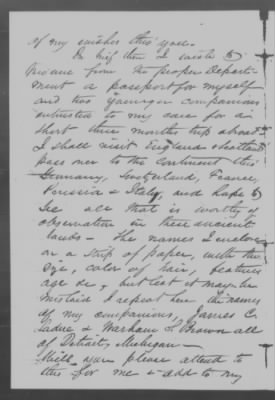 of my wishes this year.
In brief then I wish to
procure from the proper Depart-
ment a passport for myself
and two younger companions
entrusted to my care for a
short three months trip abroad.
I shall visit England Scotland
pass over to the Continent thro'
Germany, Switzerland, France,
Prussia & Italy, and hope to
see all that is worthy of
observation in these ancient
lands – The names I enclose
on a slip of paper, with the
size, color of hair, features
age &c, but lest it may be
mislaid I repeat here the names
of my companions, James C.
& Warham S. Brown all
of Detroit, Michigan –
Will you please attend to
this for me & add to my